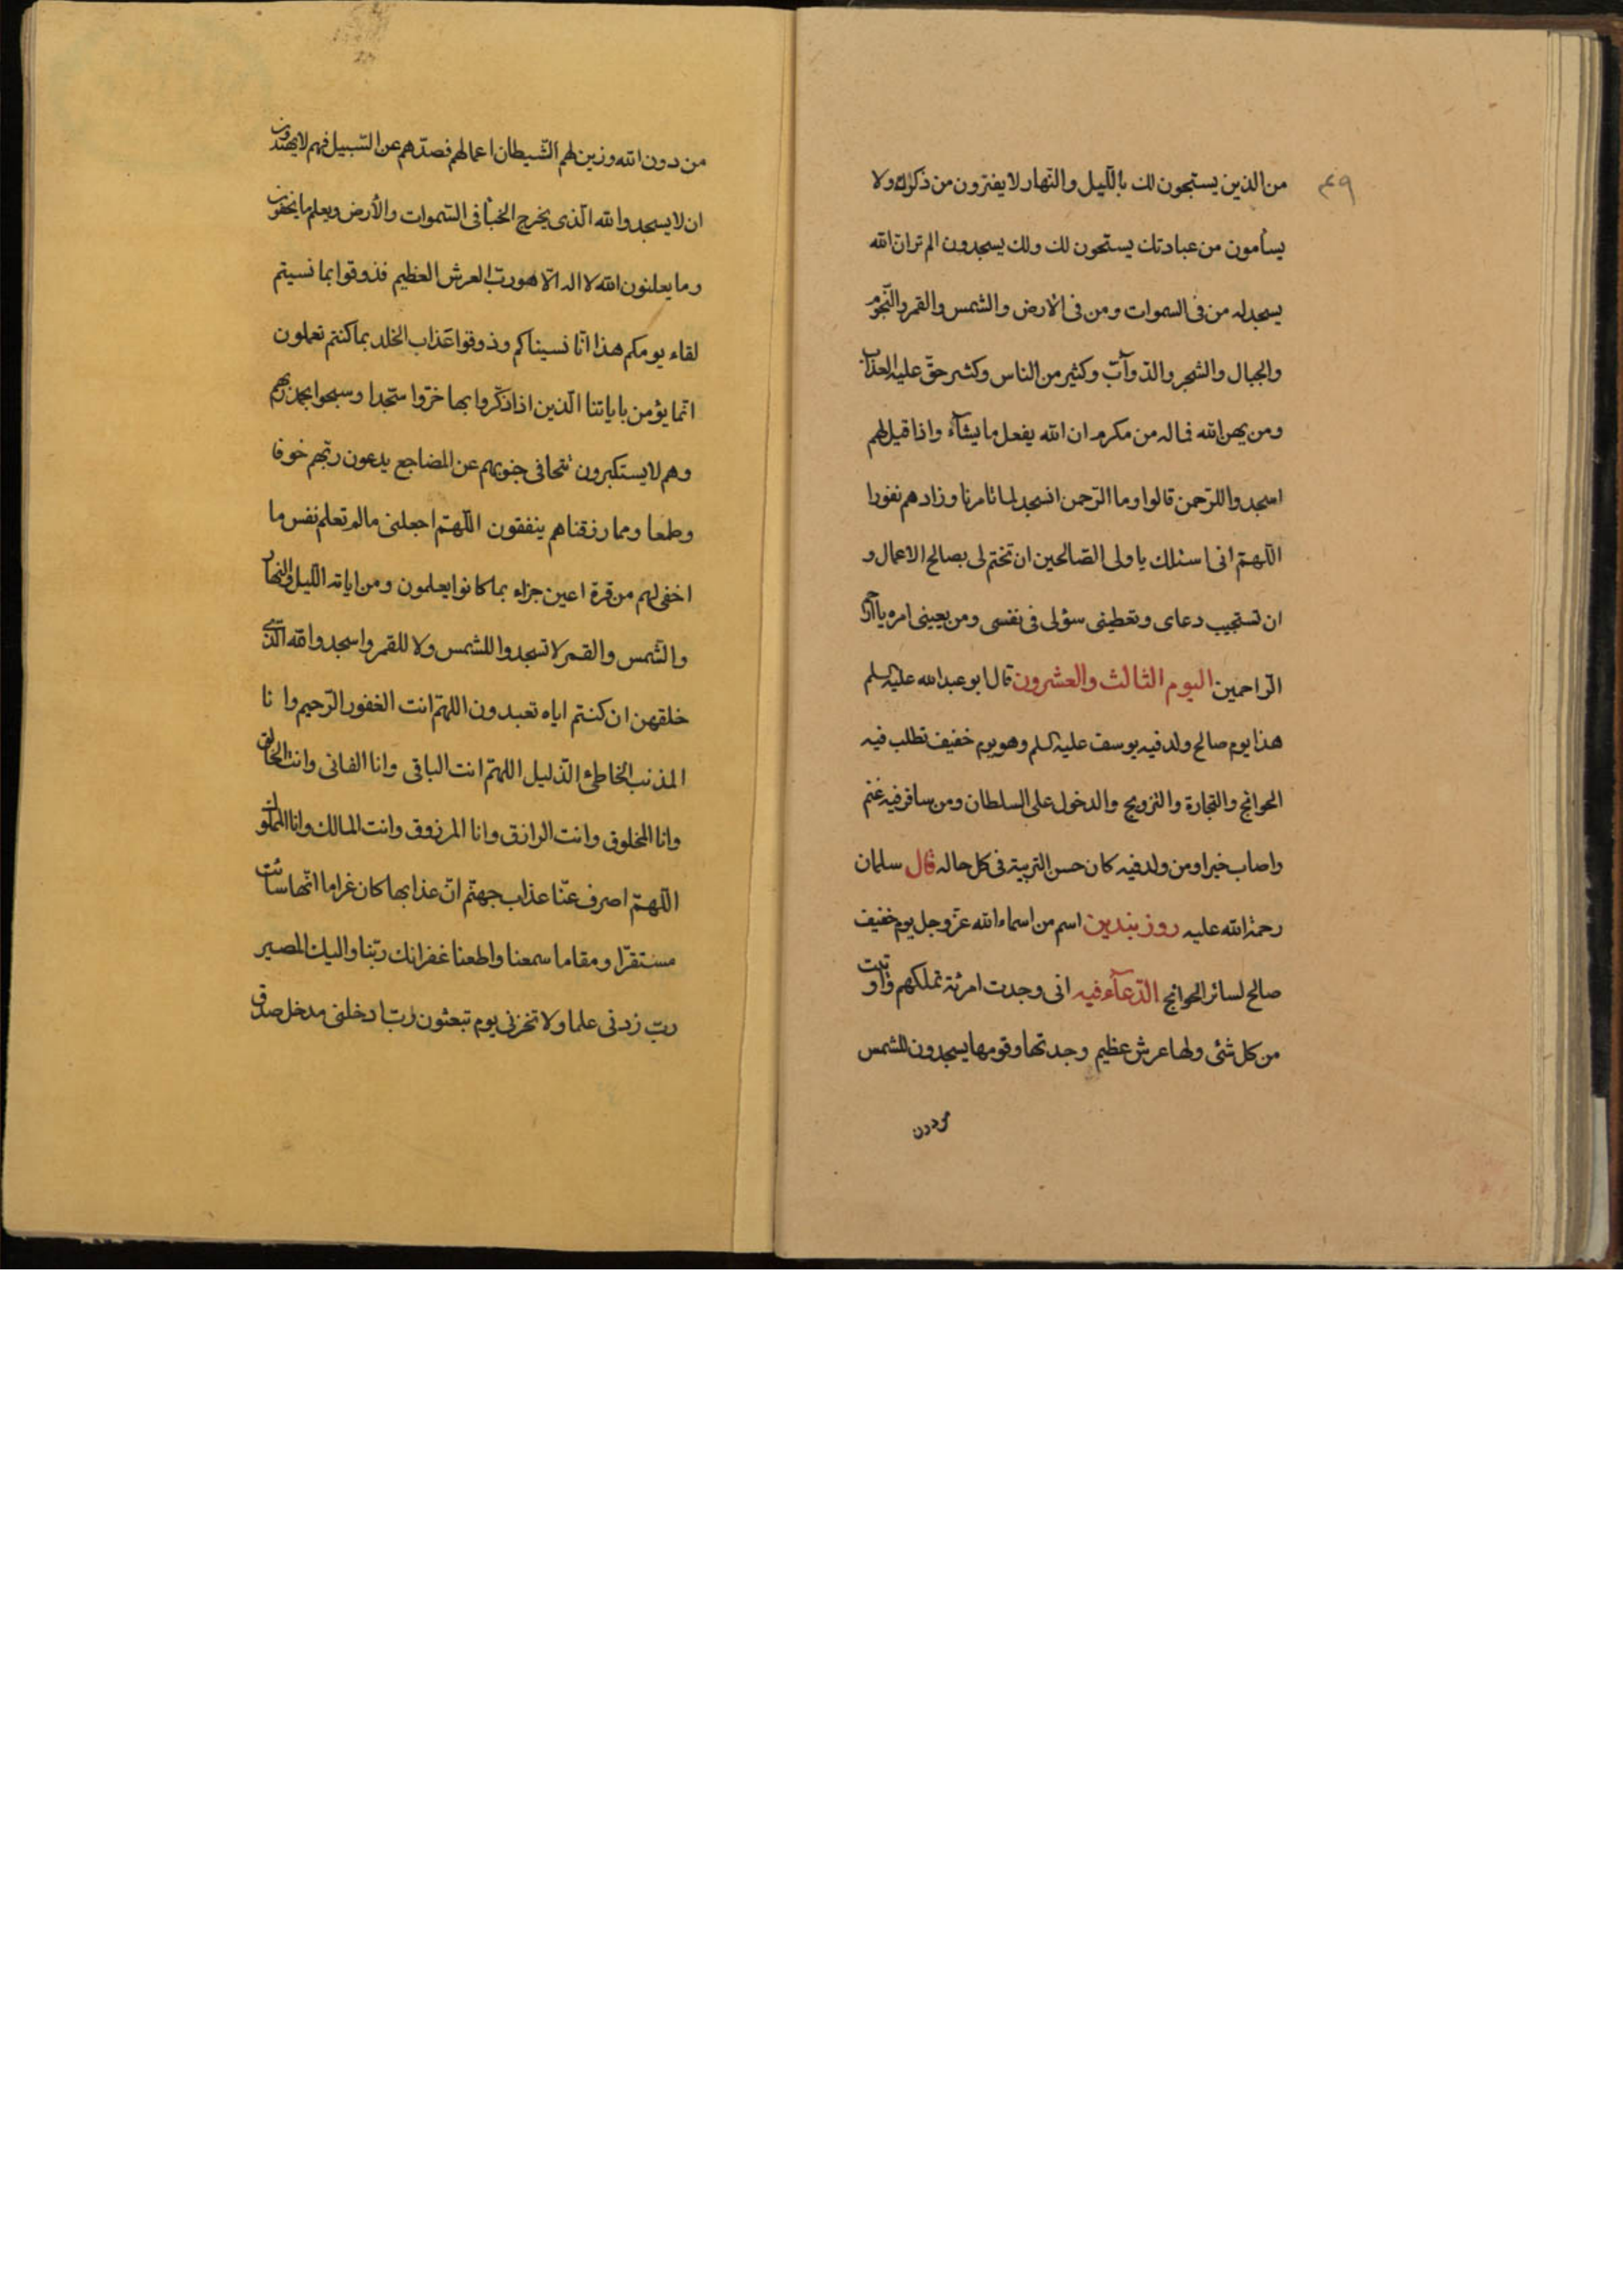 من الذين يسبحون لك بالليل والنهار لا يفترون من ذكرك ولا
يسأمون من عبادتك يسبحون لك ولك يسجدون الم تر ان الله
يسجد له من فى السموات ومن فى الارض والشمس والقمر والنجوم
والجبال والشجر والدوآبّ وكثير من الناس وكثير حقّ عليه العذاب
ومن يهن الله فماله من مكرم ان الله يفعل ما يشآء واذا قيل لهم
اسجدوا للرّحمن قالوا وما الرّحمن انسجد لما تامرنا وزادهم نفورا
اللّهمّ انى اسئلك يا ولى الصّالحين ان تختم لى بصالح الاعمال و
ان تستجيب دعاى وتعطينى سؤلى فى نفسى ومن يعينى امره يا ارحم
الرّاحمين اليوم الثالث والعشرون قال ابو عبد الله عليه السلم
هذا يوم صالح ولد فيه يوسف عليه السلم وهو يوم خفيف تطلب فيه
الحوائج والتجارة والتزويج والدخول على السلطان ومن سافر فيه غنم
واصاب خيرا ومن ولد فيه كان حسن التربية فى كل حاله قال سلمان
رحمة الله عليه روز بندين اسم من اسماء الله عزّ وجل يوم خفيف
صالح لسائر الحوائج الدّعآء فيه انى وجدت امرئة تملكهم واوتيت
من كل شئ ولها عرش عظيم وجدتها وقومها يسجدون للشمس
من دون الله وزين لهم الشّيطان اعمالهم فصدّهم عن السّبيل فهم لا يهتدون
ان لا يسجدوا لله الّذى يخرج الخبأ فى السّموات والأرض ويعلم ما يخفون
وما يعلنون الله لا اله الّا هو ربّ العرش العظيم فذوقوا بما نسيتم
لقاء يومكم هذا انّا نسيناكم وذوقوا عذاب الخلد بما كنتم تعملون
انّما يؤمن باياتنا الّذين اذا ذكّروا بها خرّوا سجّدا وسبحوا بحمد ربهم
وهم لا يستكبرون تتجافى جنوبهم عن المضاجع يدعون ربّهم خوفا
وطمعا ومما رزقناهم ينفقون اللّهمّ اجعلنى مالم تعلم نفس ما
اخفى لهم من قرة اعين جزاء بما كانوا يعلمون ومن اياته اللّيل والنهار
والشّمس والقمر لا تسجدوا للشمس ولا للقمر واسجدوا لله الّذى
خلقهن ان كنتم اياه تعبدون اللهمّ انت الغفور الرّحيم وانا
المذنب الخاطئ الذليل اللهمّ انت الباقى وانا الفانى وانت الخالق
وانا المخلوق وانت الرازق وانا المرزوق وانت المالك وانا المملوك
اللّهمّ اصرف عنّا عذاب جهنّم انّ عذابها كان غراما انّها سائت
مستقرّا ومقاما سمعنا واطعنا غفرانك ربّنا واليك المصير
ربّ زدنى علما ولا تخزنى يوم تبعثون ربّ ادخلنى مدخل صدق